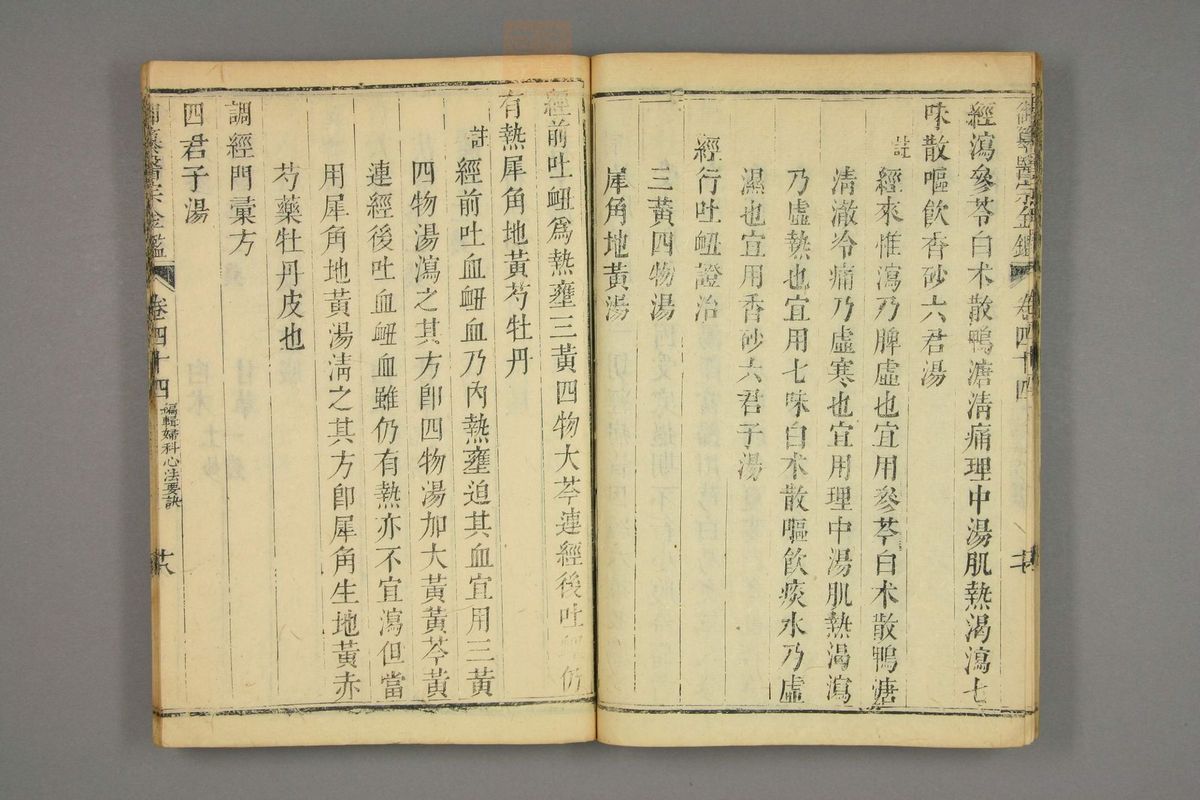 御纂醫宗金鑑 卷四十四
經瀉參苓白术散鴨溏淸痛理中湯肌熱渴瀉七
味散嘔飮香砂六君湯
註
經來惟瀉乃脾虛也宜用參苓白术散鴨溏
淸澈冷痛乃虛寒也宜用理中湯肌熱渴瀉
乃虛熱也宜用七味白术散嘔飮痰水乃虛
濕也宜用香砂六君子湯
經行吐衄證治
三黃四物湯
犀角地黃湯
經前吐衄爲熱壅三黃四物大芩連經後吐衄仍
有熱犀角地黃芍牡丹
註
經前吐血衄血乃內熱壅迫其血宜用三黃
四物湯瀉之其方卽四物湯加大黃黃芩黃
連經後吐血衄血雖仍有熱亦不宜瀉但當
用犀角地黃湯淸之其方卽犀角生地黃赤
芍藥牡丹皮也
調經門彙方
四君子湯
御纂醫宗金鑑 卷四十四 編輯婦科心法要訣 廿八